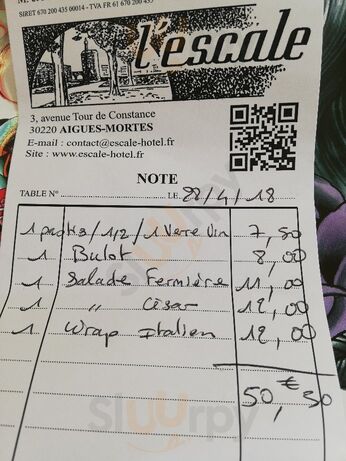 SIRET 670 200 435 00014 - TVA FR 61 670 200 435
l'escale
3, avenue Tour de Constance
30220 AIGUES-MORTES
E-mail : contact@escale-hotel.fr
Site : www.escale-hotel.fr
NOTE
TABLE N° LE 22/4/18
1 pastis/1/2/1 Verre Vin 7,50
1 Bulot 8,00
1 Salade Fermière 11,00
1 " César 12,00
1 Wrap Italien 12,00
50,€50
sluurpy